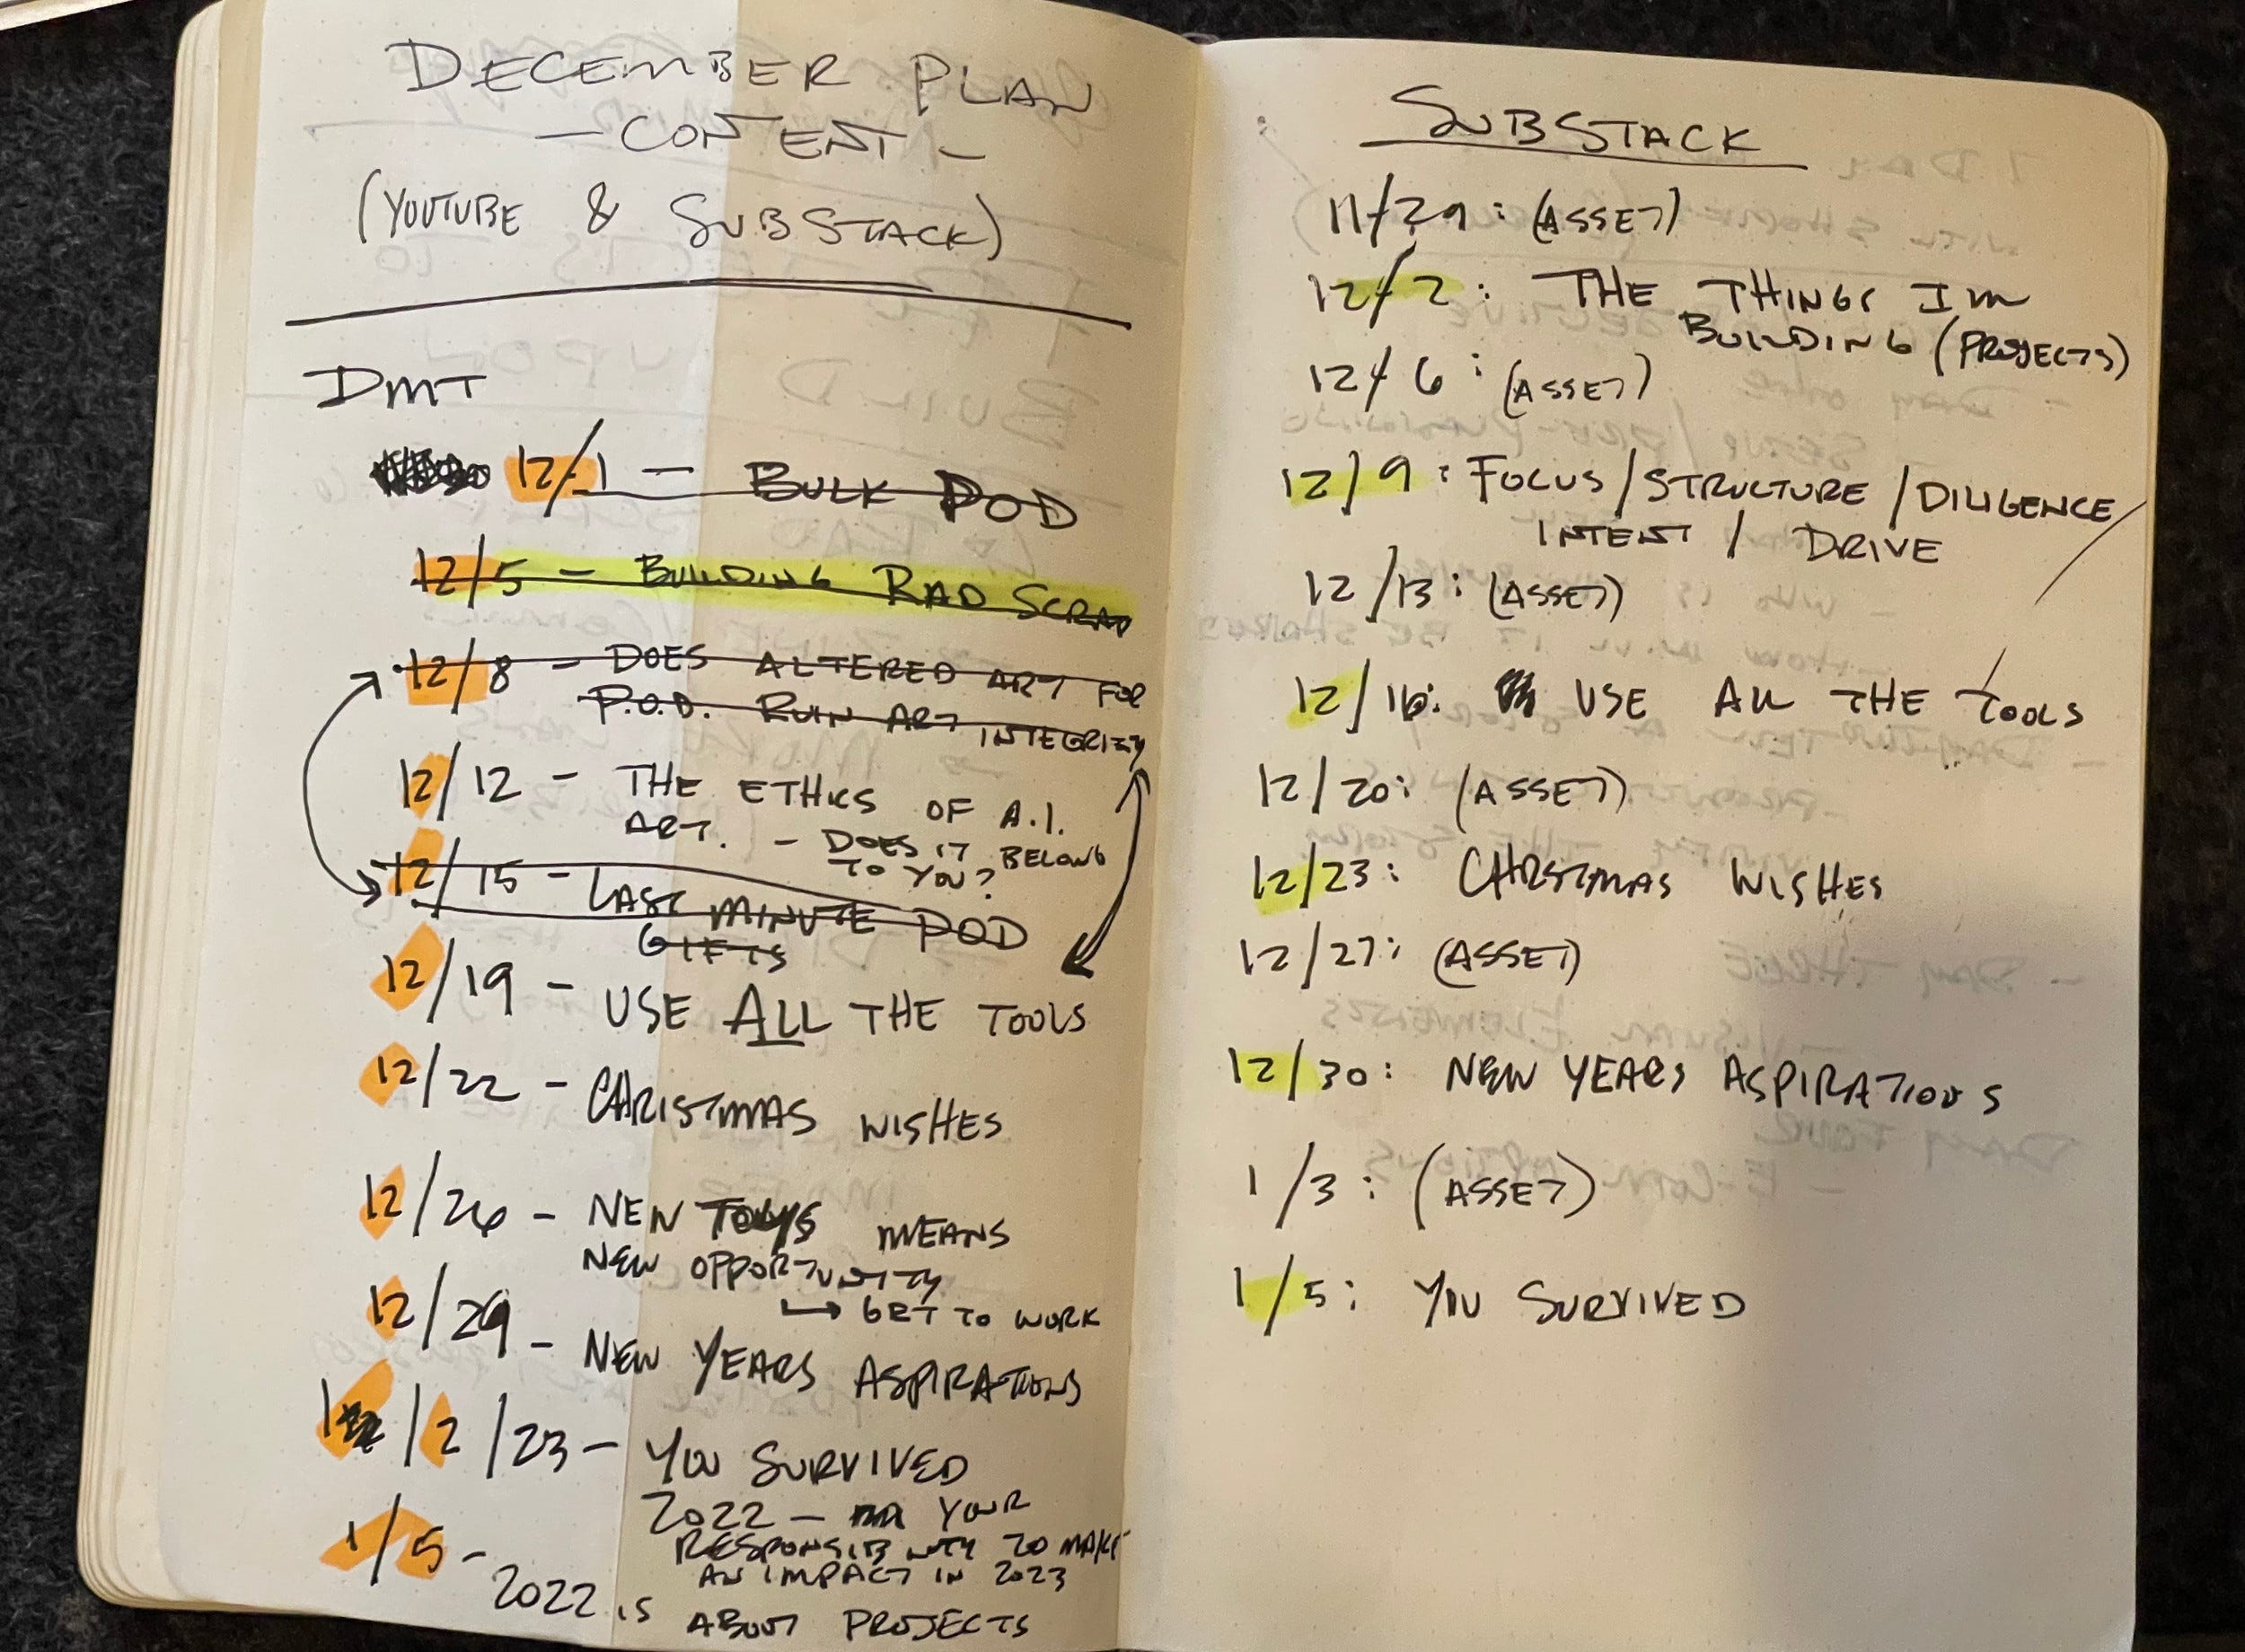 DECEMBER PLAN
— CONTENT —
(YOUTUBE & SUBSTACK)
DMT
12/1 — BULK POD
12/5 — BUILDING RAD SCRAP
12/8 — DOES ALTERED ART FOR
P.O.D. RUIN ART INTEGRITY
12/12 — THE ETHICS OF A.I.
ART. — DOES IT BELONG
TO YOU?
12/15 — LAST MINUTE POD
GIFTS
12/19 — USE ALL THE TOOLS
12/22 — CHRISTMAS WISHES
12/26 — NEW TOYS MEANS
NEW OPPORTUNITY
→ GET TO WORK
12/29 — NEW YEARS ASPIRATIONS
1/2/23 — YOU SURVIVED
2022 — YOUR
RESPONSIBILITY TO MAKE
AN IMPACT IN 2023
1/5 — 2022 IS ABOUT PROJECTS
SUBSTACK
11/29: (ASSET)
12/2: THE THINGS IM
BUILDING (PROJECTS)
12/6: (ASSET)
12/9: FOCUS/STRUCTURE/DILIGENCE
INTENT / DRIVE
12/13: (ASSET)
12/16: USE ALL THE TOOLS
12/20: (ASSET)
12/23: CHRISTMAS WISHES
12/27: (ASSET)
12/30: NEW YEARS ASPIRATIONS
1/3: (ASSET)
1/5: YOU SURVIVED